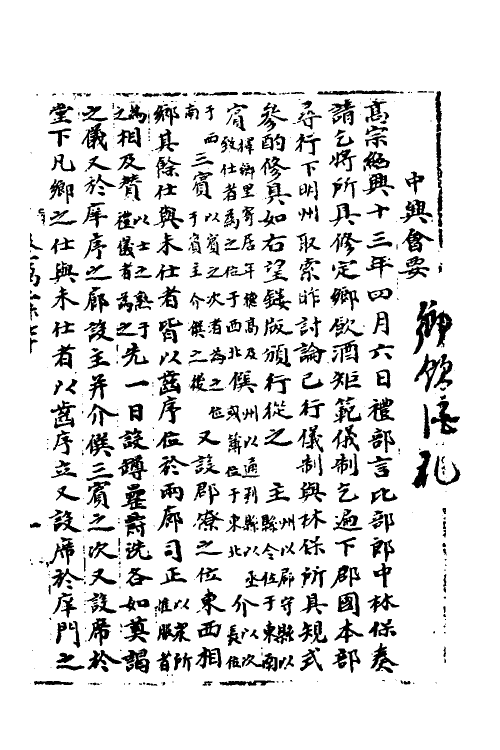 中興會要
鄉飲酒礼
高宗紹興十三年四月六日禮部言比部郎中林保奏
請乞將所具修定鄉飲酒矩範儀制乞遍下郡國本部
尋行下明州取索昨討論已行儀制與林保所具規式
參酌修具如右望鏤版頒行從之 主州以郡守縣以縣令位于東南
賓擇鄉里寄居年德高及致仕者為之位于西北 僎州以通判縣以丞或簿位于東北 介以次長位
于西南 三賓以賓之次者為之位于賓主介僎之後 又設郡僚之位東西相
鄉其餘仕與未仕者皆以齒序位於兩廊司正以眾所推服者
為之相及贊以士之熟于禮儀者為之先一日設罇罍爵洗各如奠謁
之儀又於庠序之廊設主并介僎三賓之次又設席於
堂下凡鄉之仕與未仕者以齒序立又設席於庠門之